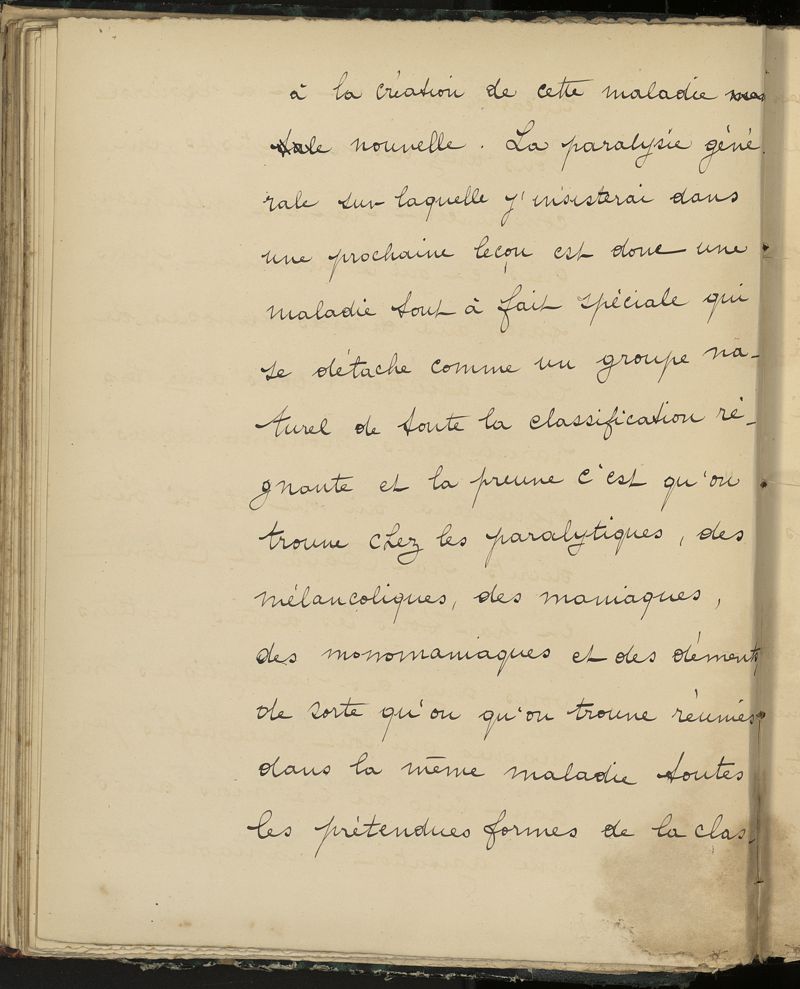 à la création de cette maladie
nouvelle. La paralysie géné
rale sur laquelle j'insisterai dans
une prochaine leçon est donc une
maladie tout à fait spéciale qui
se détache comme un groupe na-
turel de toute la classification ré-
gnante et la preuve c'est qu'on
trouve chez les paralytiques, des
mélancoliques, des maniaques,
des monomaniaques et des déments
de sorte qu'on qu'on trouve réunies
dans la même maladie toutes
les prétendues formes de la clas-